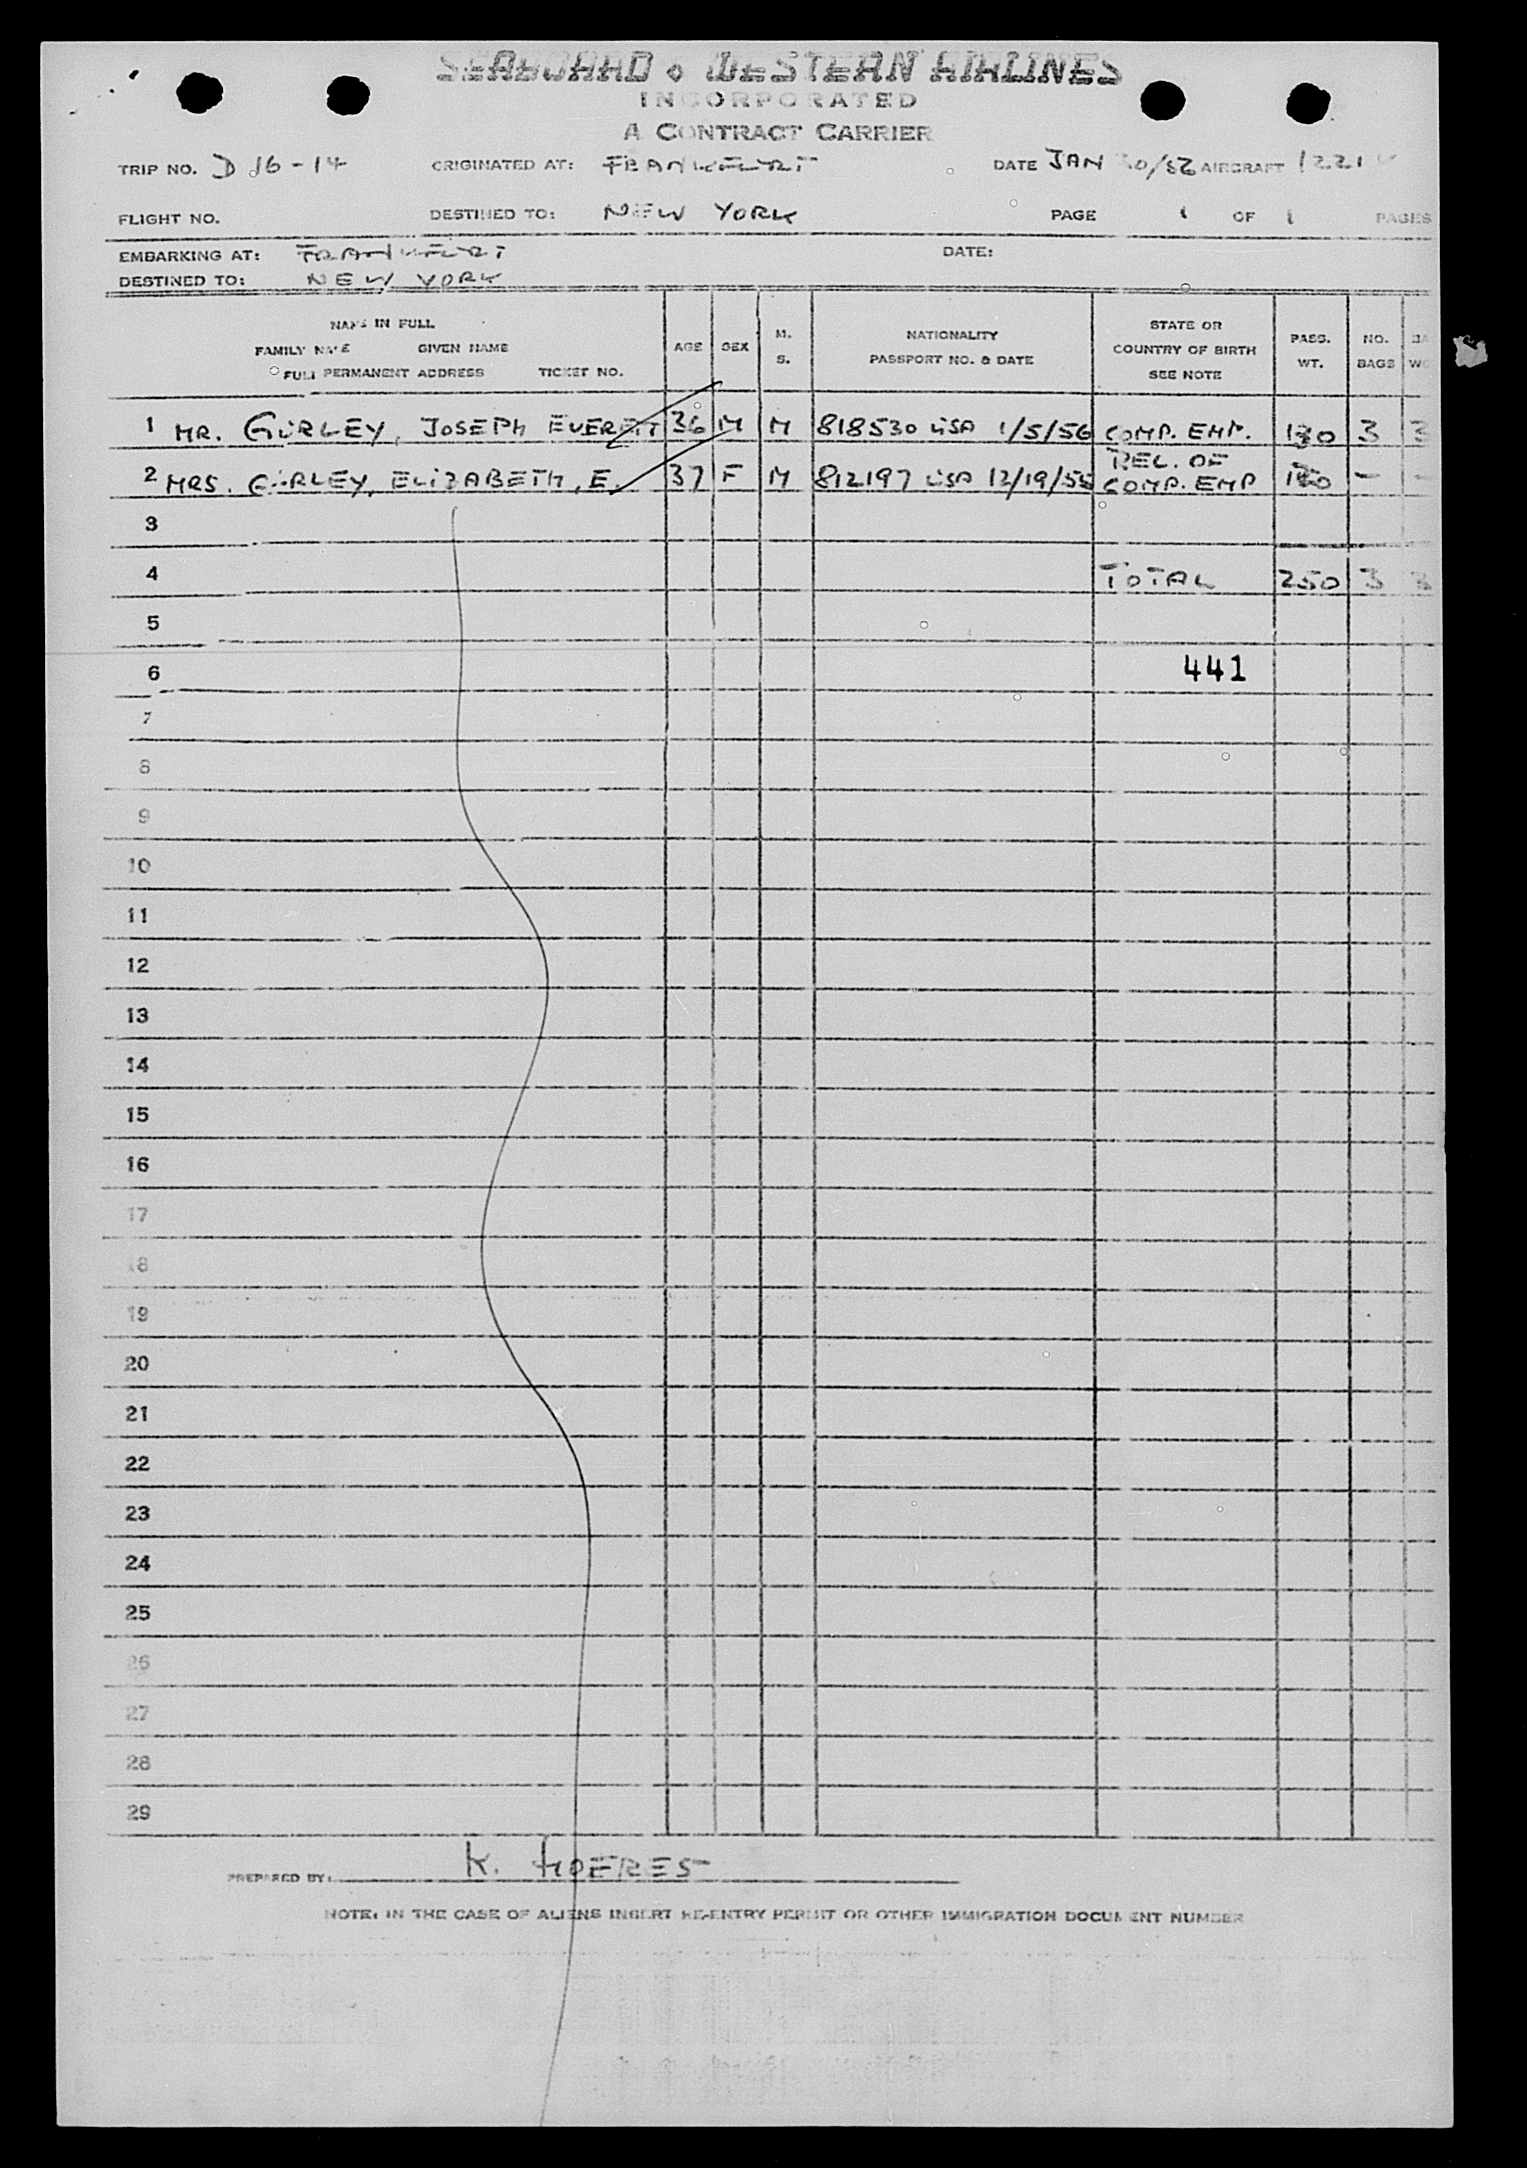 SEABOARD & WESTERN AIRLINES
INCORPORATED
A CONTRACT CARRIER
TRIP NO. D 16-14 ORIGINATED AT: FRANKFURT DATE JAN 30/56 AIRCRAFT 1221
FLIGHT NO. DESTINED TO: NEW YORK PAGE 1 OF 1 PAGES
EMBARKING AT: FRANKFURT DATE:
DESTINED TO: NEW YORK
NAME IN FULL
FAMILY NAME GIVEN NAME
FULL PERMANENT ADDRESS TICKET NO.
AGE SEX M. S.
NATIONALITY
PASSPORT NO. & DATE
STATE OR
COUNTRY OF BIRTH
SEE NOTE
PASS. WT.
NO. BAGS
1 MR. GURLEY, JOSEPH EVERETT 36 M M 818530 USA 1/5/56 COMP. EMP. 130 3 3
2 MRS. GURLEY, ELIZABETH, E. 37 F M 812197 USA 12/19/55 REL. OF COMP. EMP 120 - -
3
4 TOTAL 250 3 3
5
6 441
7
8
9
10
11
12
13
14
15
16
17
18
19
20
21
22
23
24
25
26
27
28
29
PREPARED BY: K. HOERES
NOTE: IN THE CASE OF ALIENS INSERT RE-ENTRY PERMIT OR OTHER IMMIGRATION DOCUMENT NUMBER